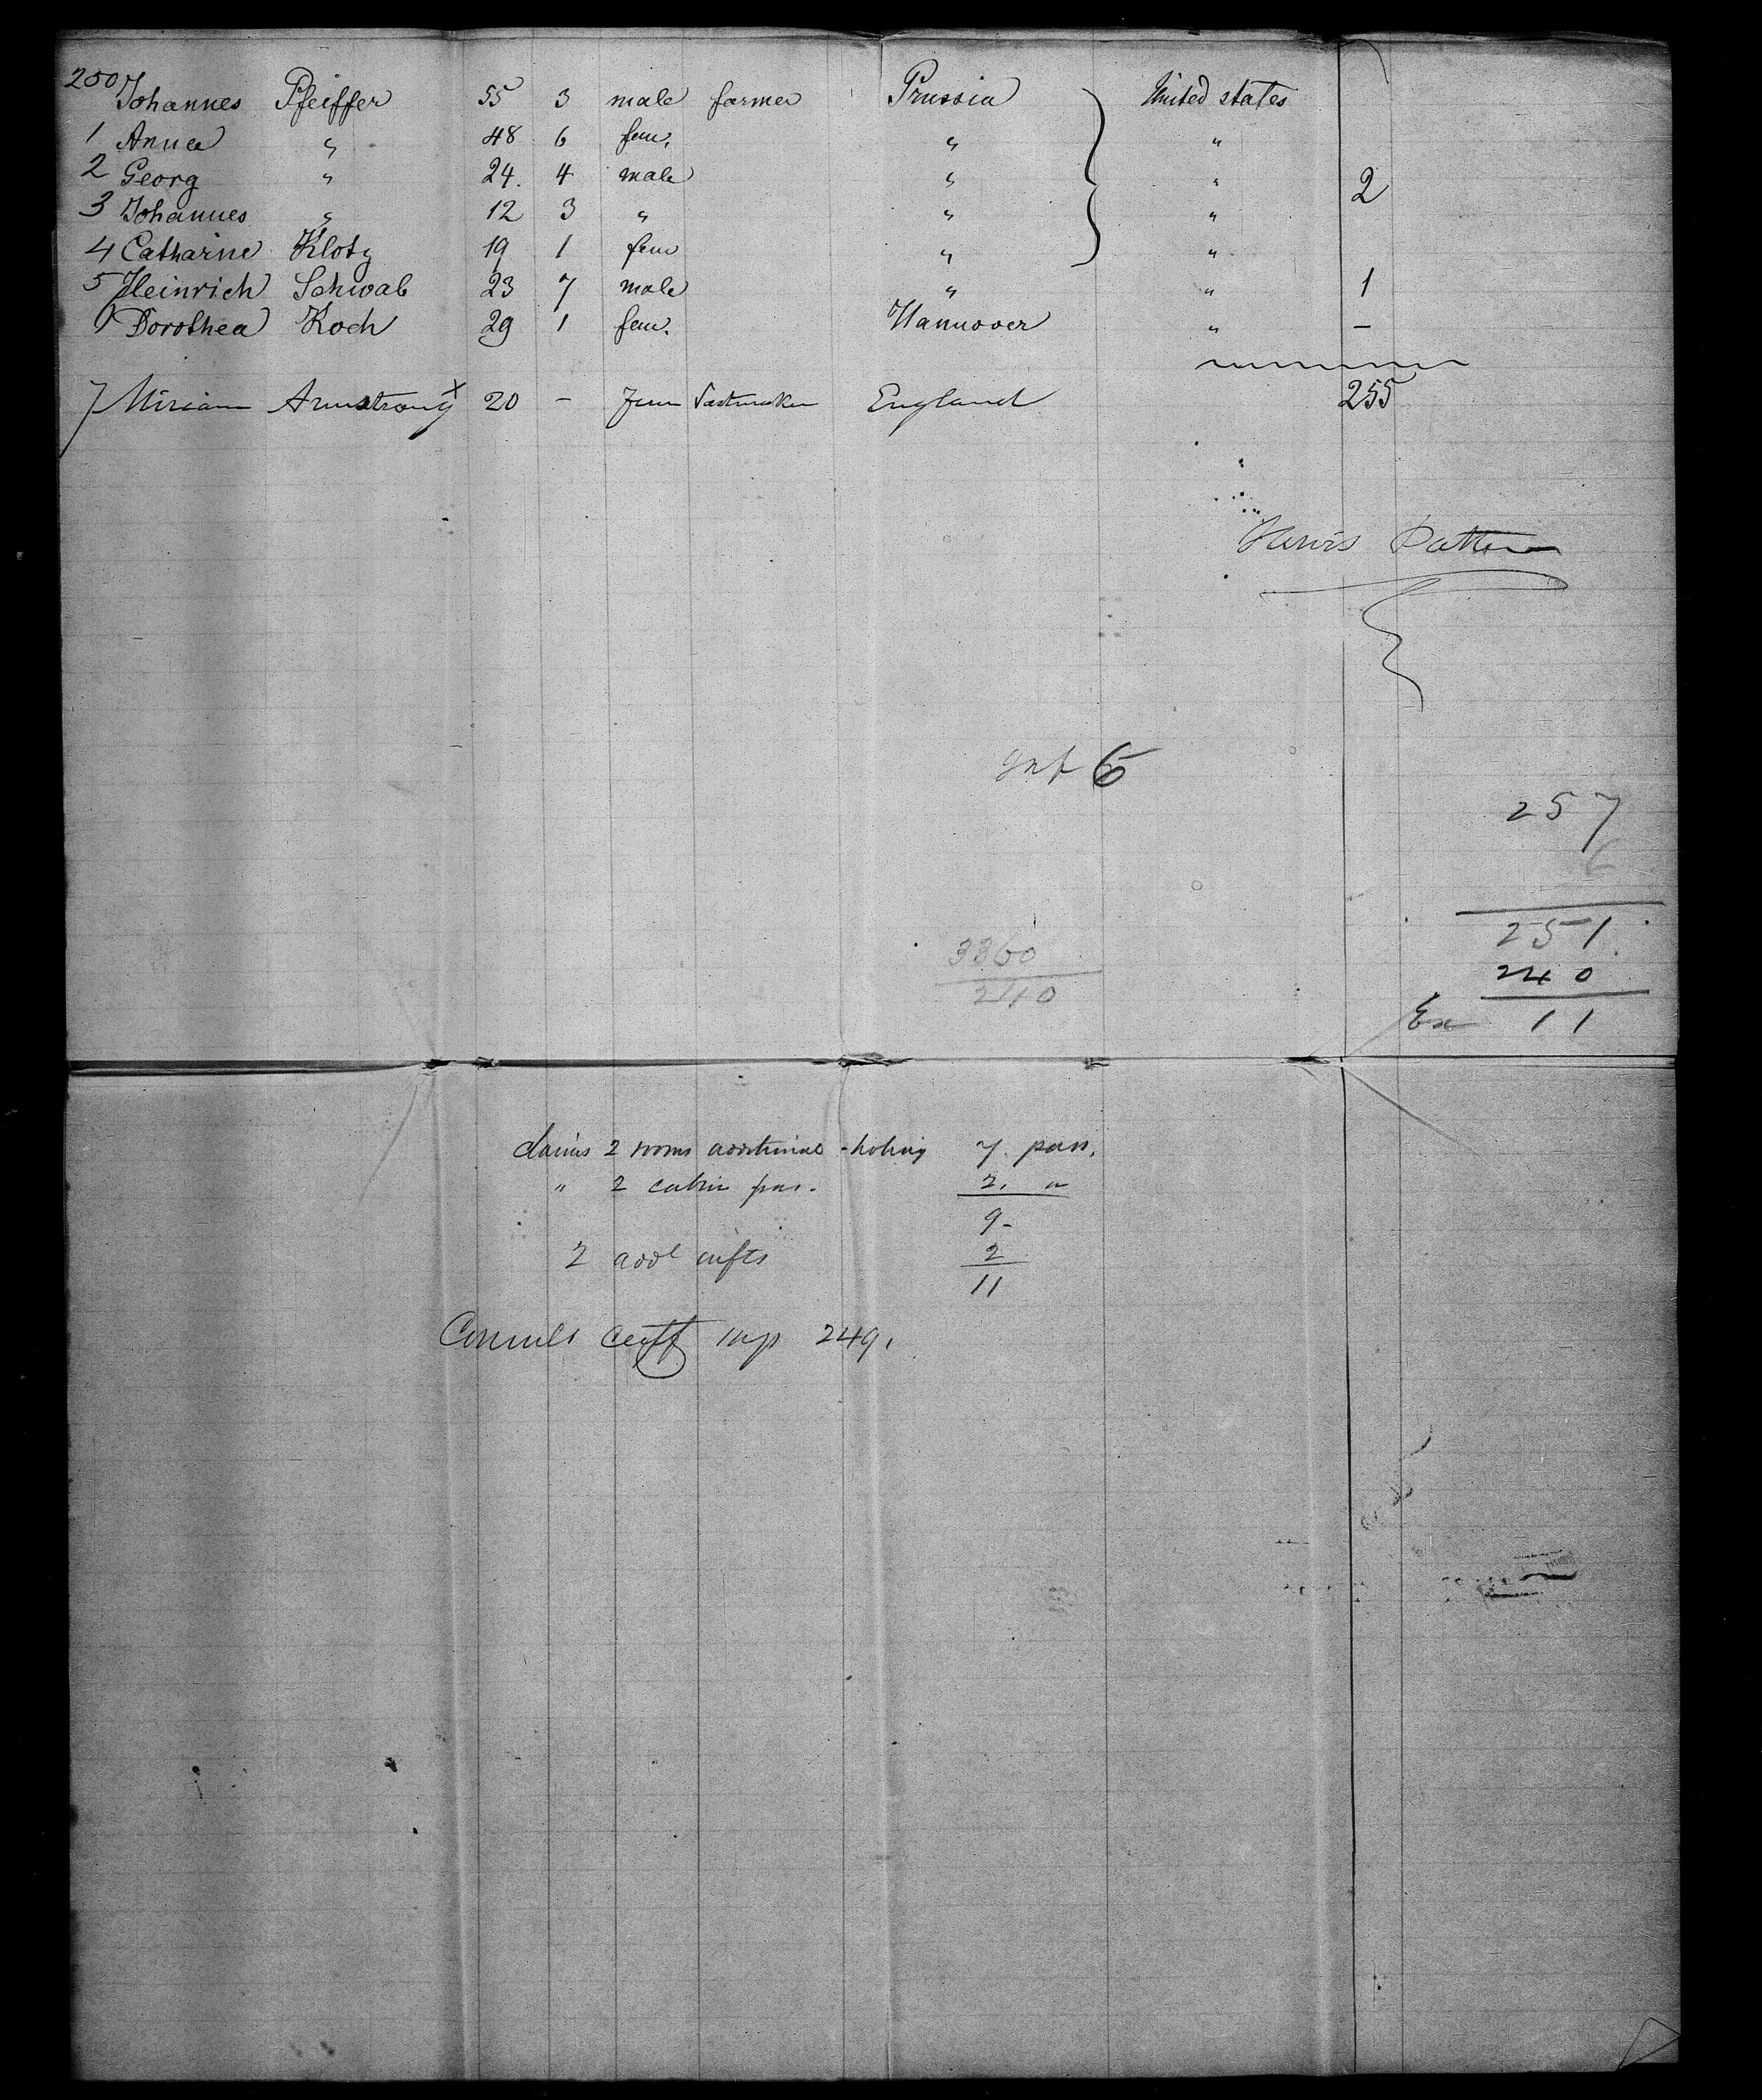 250 Johannes Pfeiffer 55 3 male farmer Prussia United states
1 Anna " 48 6 fem. " "
2 Georg " 24. 4 male " " 2
3 Johannes " 12 3 " " "
4 Catharine Klotz 19 1 fem " "
5 Heinrich Schwab 23 7 male " " 1
6 Dorothea Koch 29 1 fem. Hannover " –
7 Miriam Armstrong x 20 – Fem England 255
Jarvis Patten
inf 6
257
6
251
240
Ex 11
3360
240
claims 2 rooms additional 7. pass.
" 2 cabin pas. 2. "
9-
2 addl infts 2
11
Consuls Certf 249.